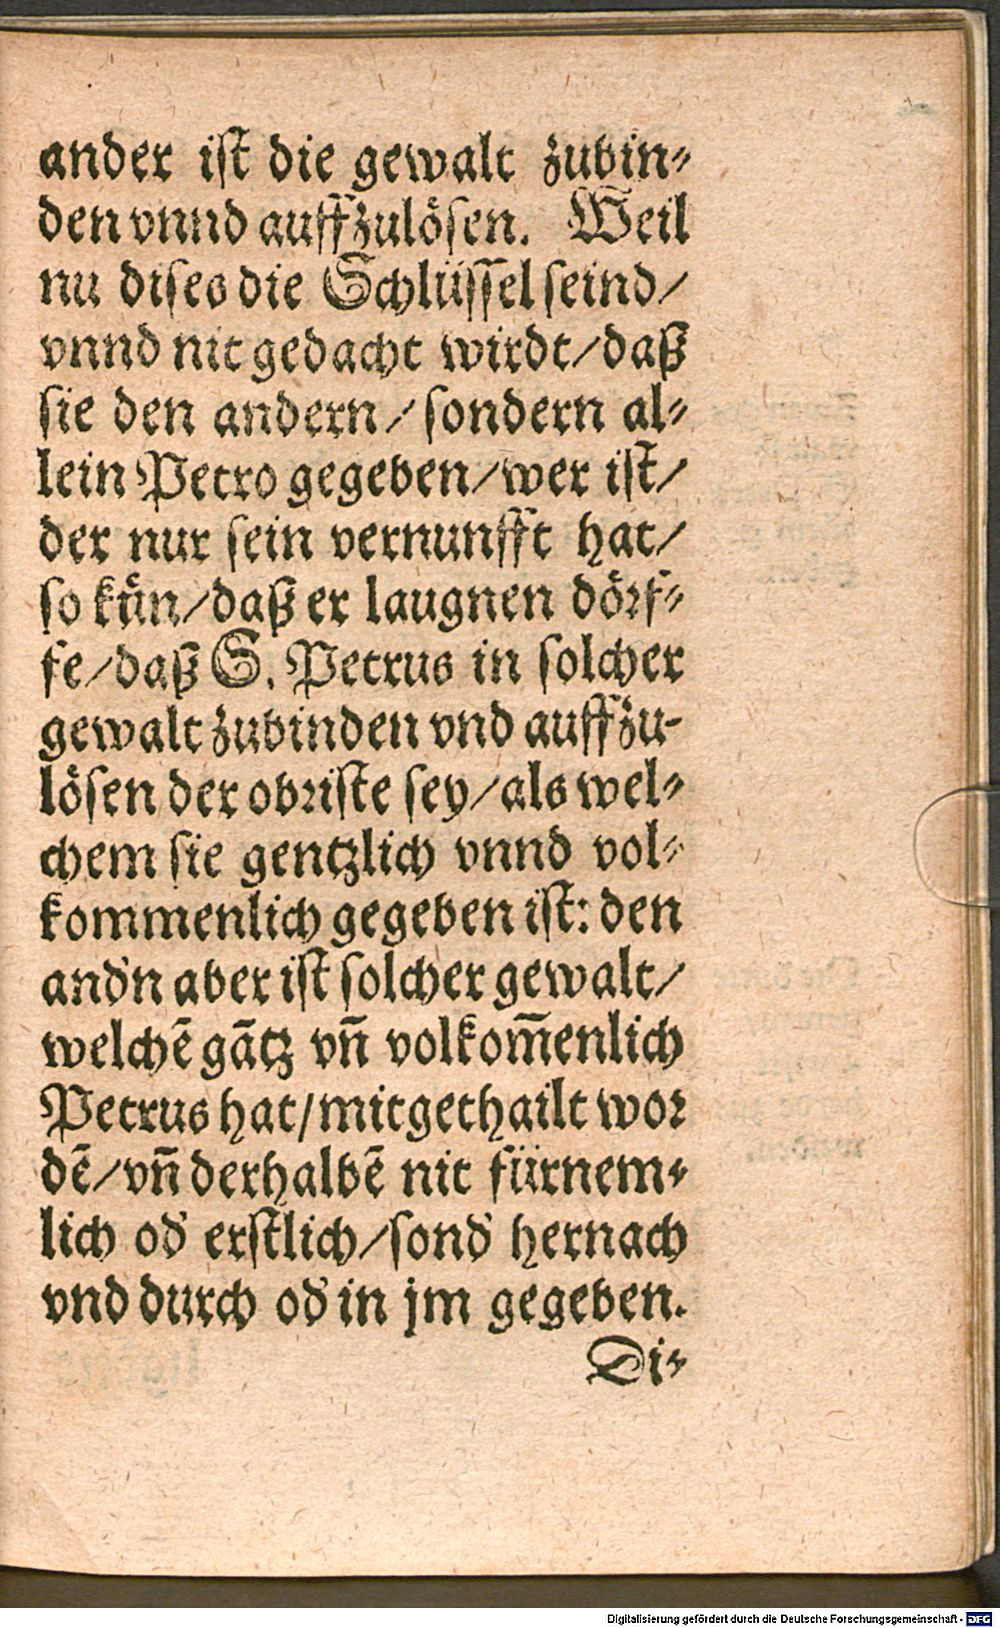 ander ist die gewalt zubin⸗
den vnnd auffzulösen. Weil
nu dises die Schlüssel seind/
vnnd nit gedacht wirdt/daß
sie den andern/sondern al⸗
lein Petro gegeben/wer ist/
der nur sein vernunfft hat/
so kün/daß er laugnen dörf⸗
fe/daß S. Petrus in solcher
gewalt zubinden vnd auffzu-
lösen der obriste sey/als wel⸗
chem sie gentzlich vnnd vol⸗
kommenlich gegeben ist: den
andn aber ist solcher gewalt/
welchē gātz vn̄ volkom̄enlich
Petrus hat/mitgethailt wor
dē/vn̄ derhalbē nit fürnem⸗
lich od erstlich/sond hernach
vnd durch od in jm gegeben.
Di⸗
Digitalisierung gefördert durch die Deutsche Forschungsgemeinschaft - DFG